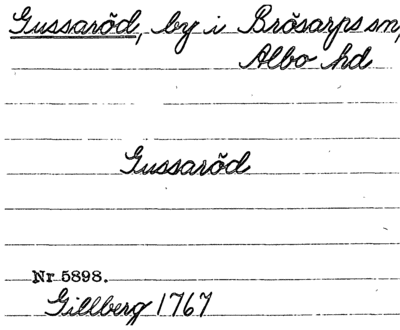 Gussaröd, by i Brösarps sn,
Albo hd
Gussaröd
Nr 5898.
Gillberg 1767